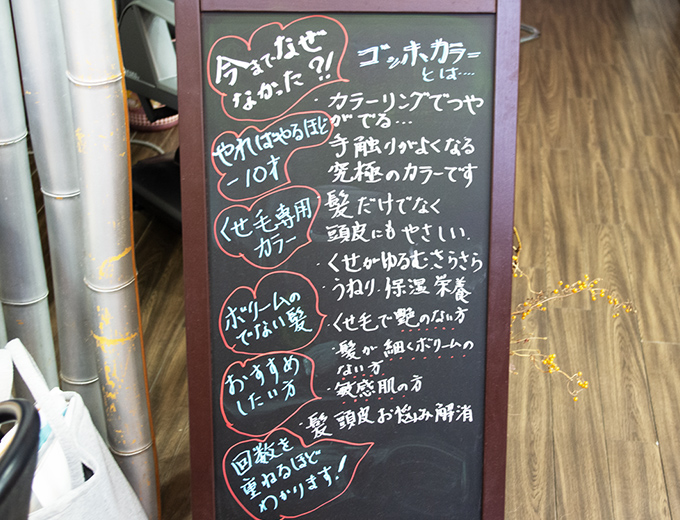 今までなぜ
なかった?!
やればやるほど
-10才
くせ毛専用
カラー
ボリュームの
でない髪
おすすめ
したい方
回数を
重ねるほど
わかります!
ゴッホカラー
とは….
・カラーリングでつや
がでる…
手触りがよくなる
究極のカラーです
・髪だけでなく
頭皮にもやさしい.
・くせがゆるむさらさら
うねり.保湿栄養
・くせ毛で艶のない方
・髪が細くボリュームの
ない方
・敏感肌の方
・髪頭皮お悩み解消